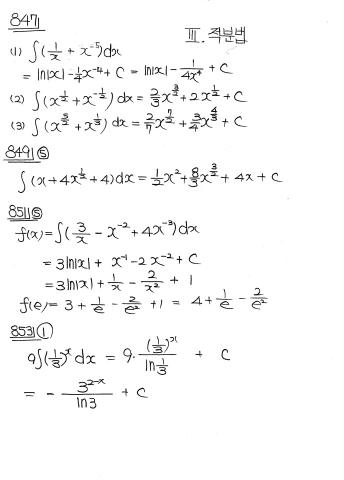 847]
III. 적분법
(1) ∫(1/x + x^-5)dx
= ln|x| - 1/4 x^-4 + C = ln|x| - 1/(4x^4) + C
(2) ∫(x^(1/2) + x^(-1/2)) dx = 2/3 x^(3/2) + 2x^(1/2) + C
(3) ∫(x^(5/2) + x^(1/3)) dx = 2/7 x^(7/2) + 3/4 x^(4/3) + C
849] ⑤
∫(x + 4x^(1/2) + 4)dx = 1/2 x² + 8/3 x^(3/2) + 4x + C
851] ⑤
f(x) = ∫(3/x - x^-2 + 4x^-3)dx
= 3ln|x| + x^-1 - 2x^-2 + C
= 3ln|x| + 1/x - 2/x² + 1
f(e) = 3 + 1/e - 2/e² + 1 = 4 + 1/e - 2/e²
853] ①
9∫(1/3)^x dx = 9 · (1/3)^x / ln 1/3 + C
= - 3^(2-x) / ln3 + C